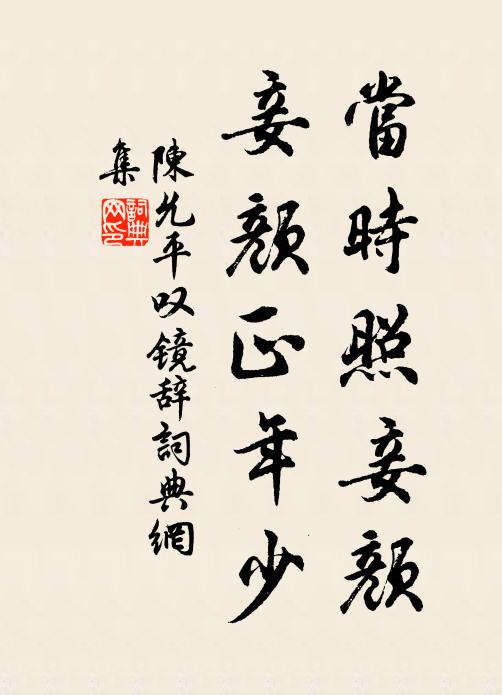 當時照妾顔
妾顔正年少
陳允平叹镜辞詞典網
集
詞典網印